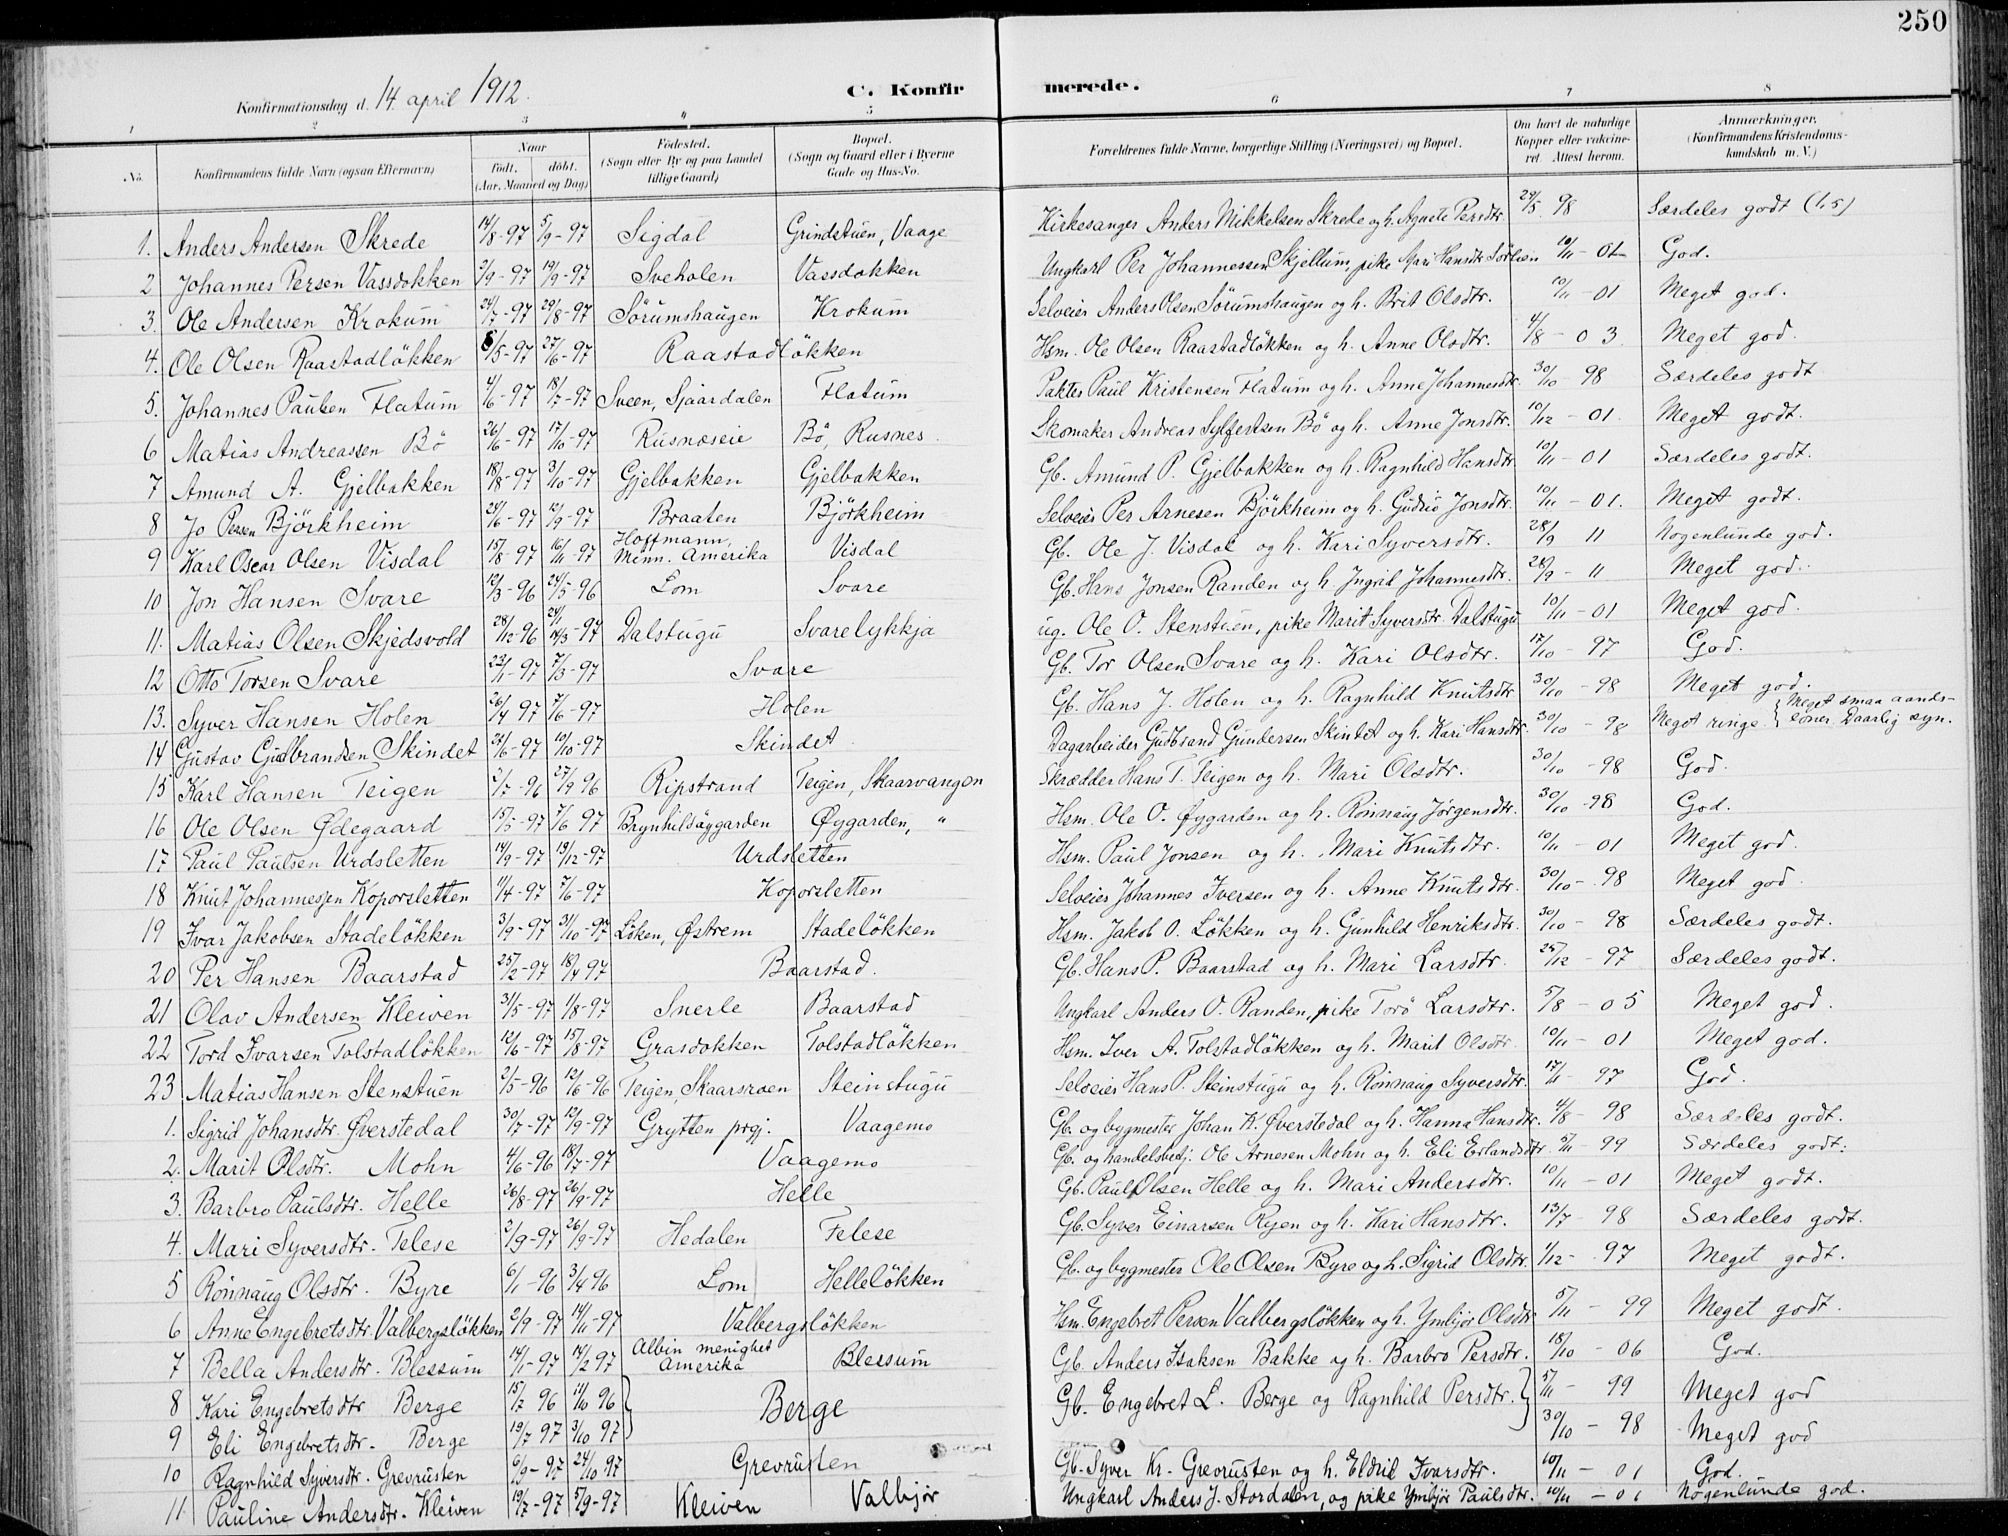 250
Konfirmationsdag d. 14. april 1912.
C. Konfirmerede.
1 2 3 4 5 6 7 8
No. Konfirmandens fulde Navn (ogsaa Efternavn) Naar født. døbt. (Aar, Maaned og Dag) Fødested. (Sogn eller By og paa Landet tillige Gaard) Bopæl. (Sogn og Gaard eller i Byerne Gade og Hus-No. Forældrenes fulde Navne, borgerlige Stilling (Næringsvei) og Bopæl. Om havt de naturlige Kopper eller vakcineret. Attest herom. Anmærkninger. (Konfirmandens Kristendomskundskab m. V.)
1. Anders Andersen Skrede 14/8-97 5/9-97 Sigdal Grindstuen, Vaage Kirkesanger Anders Mikkelsen Skrede og h. Agnete Persdtr. 29/5 98 Særdeles godt (1,5)
2 Johannes Persen Vassdokken 2/9-97 19/9-97 Sveholen Vassdokken Ungkarl Per Johannessen Skjellum, pike Mari Hansdtr. 10/11-01 God.
3. Ole Andersen Krokum 24/7-97 29/8-97 Sörumshaugen Krokum Selveier Anders Olsen Sörumshaugen og h. Brit Olsdtr. 10/11-01 Meget god.
4. Ole Olsen Raastadlökken 8/5-97 27/6-97 Raastadlökken Hsm. Ole Olsen Raastadlökken og h. Anne Olsdtr. 4/8-03 Meget god.
5. Johannes Paulsen Flatum 4/6-97 18/7-97 Sveen, Sjaardalen Flatum Pakter Paul Kristensen Flatum og h. Anne Johannesdtr. 30/10 98 Særdeles godt
6 Matias Andreassen Bö 26/6-97 17/10-97 Rusnæseie Bö, Rusnes. Skomaker Andreas Sylfestsen Bö og h. Anne Jonsdtr. 10/12-01. Meget godt.
7 Amund A. Gjelbakken 18/8-97 3/10-97 Gjelbakken Gjelbakken Gb. Amund P. Gjelbakken og h. Ragnhild Hansdtr. 10/11-01 Særdeles godt.
8 Jo Persen Björkheim 24/6-97 12/9-97 Braaten Björkheim Selveier Per Arnesen Björkheim og h. Gudrid Jonsdtr. 10/11-01. Meget godt.
9 Karl Oscar Olsen Visdal 15/8-97 16/11-97 Hoffmann, Minn. Amerika Visdal Gb. Ole J. Visdal og h. Kari Syversdtr. 28/9 11 Nogenlunde god.
10 Jon Hansen Svare 12/3-96 24/5-96 Lom Svare Gb. Hans Jonsen Randen og h. Ingrid Johannesdtr. 28/9-11 Meget god.
11. Matias Olsen Skjedsvold 28/12-96 24/1 14/3-97 Dalstugu Svarelykkja ug. Ole O. Stenstuen, pike Marit Syversdtr. Dalstugu 10/11-01 Meget god.
12 Otto Torsen Svare 23/1-97 7/3-97 Svare Gb. Tor Olsen Svare og h. Kari Olsdtr. 17/10-97 God.
13. Syver Hansen Holen 26/4 97 7/6-97 Holen Gb. Hans J. Holen og h. Ragnhild Knutsdtr. 30/10-98 Meget god.
14 Gustav Gudbrandsen Skindet 24/6-97 10/10-97 Skindet Dagarbeider Gudbrand Gundersen Skindet og h. Kari Hansdtr. 30/10-98 Meget ringe. {Meget smaa aandsevner. Daarlig syn.
15 Karl Hansen Teigen 2/7-96 27/9 96 Ripstrand Teigen, Skaarvangen Skrædder Hans T. Teigen og h. Mari Olsdtr. 30/10-98 God.
16 Ole Olsen Ødegaard 15/5-97 7/6 97 Brynhildsøygarden Øygarden, " Hsm. Ole O. Øygarden og h. Rönnaug Jørgensdtr. 30/10-98 God.
17 Paul Paulsen Urdsletten 14/9-97 19/12-97 Urdsletten Hsm. Paul Jonsen og h. Mari Knutsdtr. 10/11-01 Meget god.
18 Knut Johannesen Koporsletten 11/4-97 7/6-97 Koporsletten Selveier Johannes Iversen og h. Anne Knutsdtr. 30/10-98 Meget god.
19 Ivar Jakobsen Stadelökken 3/9-97 31/10-97 Löken, Østrem Stadelökken Hsm. Jakob O. Lökken og h. Gunhild Henriksdtr. 30/10-98 Særdeles godt.
20 Per Hansen Baarstad 25/2-97 18/4 97 Baarstad. Gb. Hans P. Baarstad og h. Mari Larsdtr. 25/12-97 Særdeles godt.
21 Olav Andersen Kleiven 31/5-97 1/8-97 Snerle Baarstad Ungkarl Anders O. Randen, pike Torö Larsdtr. 5/8-05 Meget god.
22 Tord Ivarsen Tolstadlökken 12/6-97 15/8-97 Grasdokken Tolstadlökken Hsm. Iver A. Tolstadlökken og h. Marit Olsdtr. 10/11-01 Meget god.
23 Matias Hansen Stenstuen 2/5-96 12/6-96 Teigen, Skaarsroen Steinstugu Selveier Hans P. Steinstugu og h. Rönnaug Syversdtr. 17/11-97 God.
1. Sigrid Johansdtr. Øverstedal 30/7-97 12/9-97 Grytten prgj. Vaagemo Gb. og bygmester Johan K. Øverstedal og h. Hanna Hansdtr. 4/8-98 Særdeles godt.
2. Marit Olsdtr. Mohn 4/6-96 18/7-97 Vaagemo Gb. og handelsbetj. Ole Arnesen Mohn og h. Eli Erlandsdtr. 5/11-99 Særdeles godt.
3. Barbro Paulsdtr. Helle 26/8-97 26/9-97 Helle Gb. Paul Olsen Helle og h. Mari Andersdtr. 10/11-01 Meget godt.
4. Mari Syversdtr. Felese 2/9-97 26/9-97 Hedalen Felese Gb. Syver Einarsen Ryen og h. Kari Hansdtr. 13/7-98 Særdeles godt.
5 Rönnaug Olsdtr. Byre 6/1-96 3/4 96 Lom Hellelökken Gb. og bygmester Ole Olsen Byre og h. Sigrid Olsdtr. 1/12-97 Meget godt.
6 Anne Engebretsdtr. Valbergslökken 2/9-97 14/11-97 Valbergslökken Hsm. Engebret Persen Valbergslökken og h. Ymbjör Olsdtr. 5/11-99 Meget godt.
7 Bella Andersdtr. Blessum 14/1-97 14/2 97 Albin menighet Amerika Blessum Gb. Anders Isaksen Bakke og h. Barbro Persdtr. 18/10-06 God.
8 Kari Engebretsdtr Berge 15/7 96 11/10 96 } Berge Gb. Engebret L. Berge og Ragnhild Persdtr. } 5/11-99 Meget god
9 Eli Engebretsdtr. Berge 19/7 97 3/10 97 30/10-98 Meget god
10 Ragnhild Syversdtr. Grevrusten 6/9-97 24/10 97 Grevrusten Gb. Syver Kr. Grevrusten og h. Eldrid Ivarsdtr. 10/11-01 God.
11. Pauline Andersdtr. Kleiven 19/7-97 5/9-97 Kleiven Valbjör Ungkarl Anders J. Stordalen, og pike Ymbjör Paulsdtr. 10/11-01 Nogenlunde god.